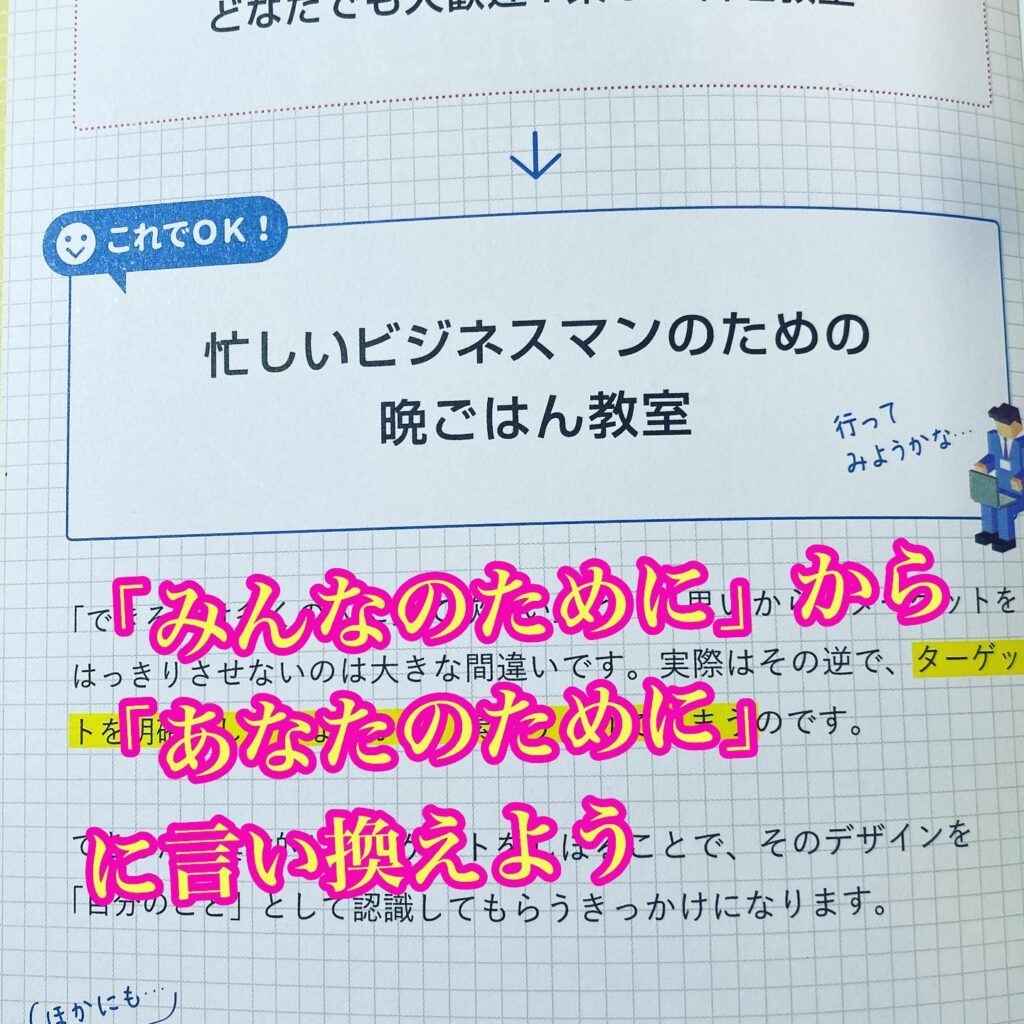 どなたでも大歓迎！
これでOK！
忙しいビジネスマンのための
晩ごはん教室
行って
みようかな…
「みんなのために」から
「できる
思いから
ットを
はっきりさせないのは大きな間違いです。実際はその逆で、ターゲッ
「あなたのために」
トを明確
まうのです。
に言い換えよう
ことで、そのデザインを
「自分のこと」として認識してもらうきっかけになります。
ほかにも…